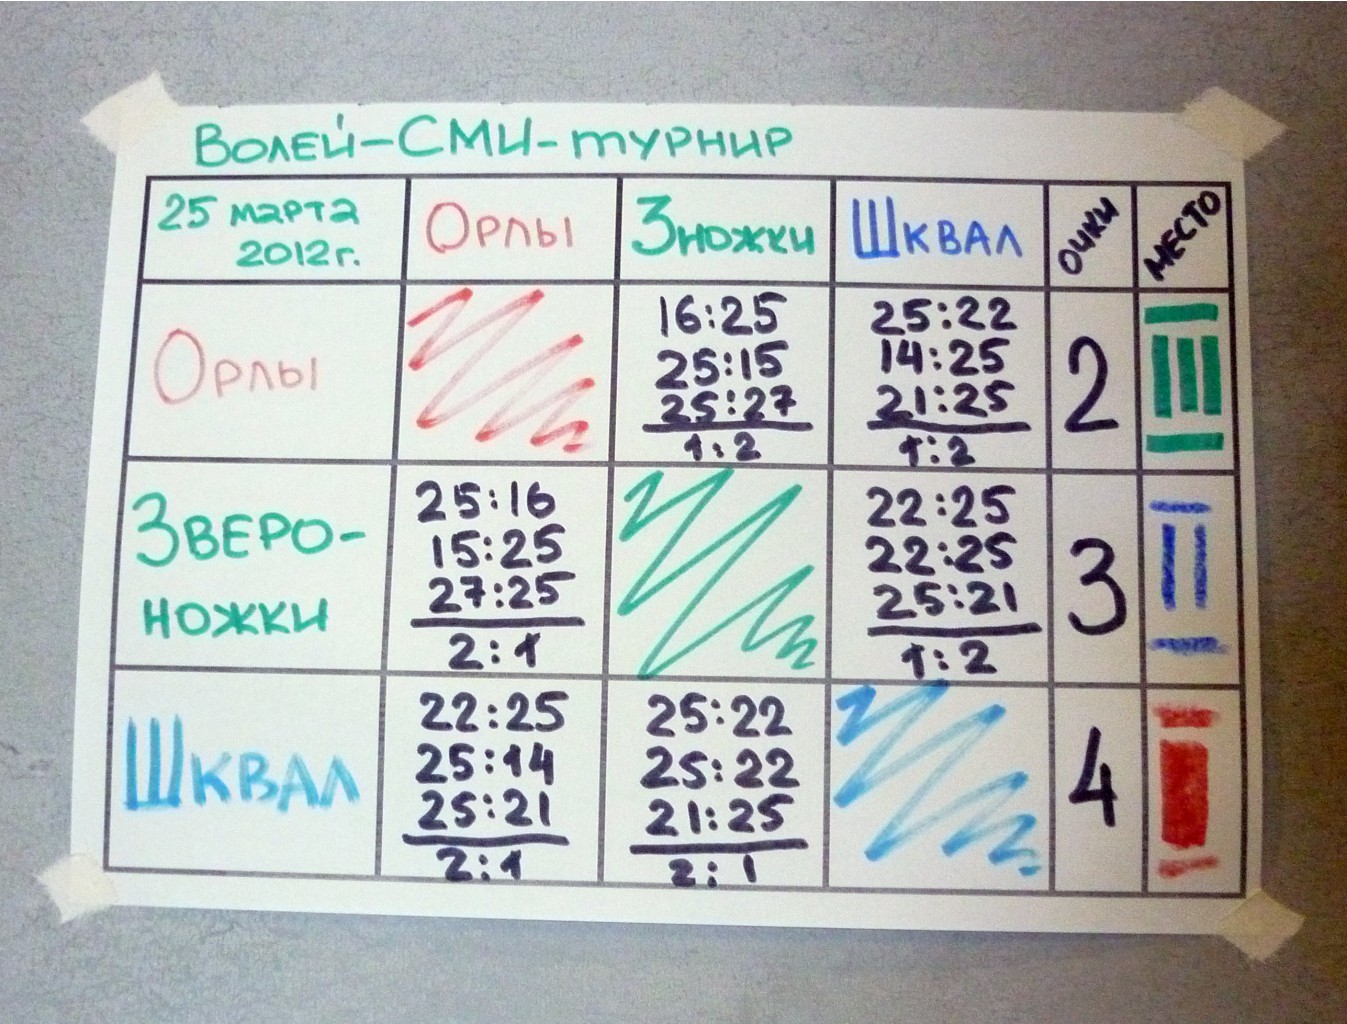 Волей-СМИ-турнир
25 марта
2012г.
Орлы
Зножки
Шквал
очки
место
Орлы
16:25
25:15
25:27
1:2
25:22
14:25
21:25
1:2
2
III
Зверо-
ножки
25:16
15:25
27:25
2:1
22:25
22:25
25:21
1:2
3
II
Шквал
22:25
25:14
25:21
2:1
25:22
25:22
21:25
2:1
4
I